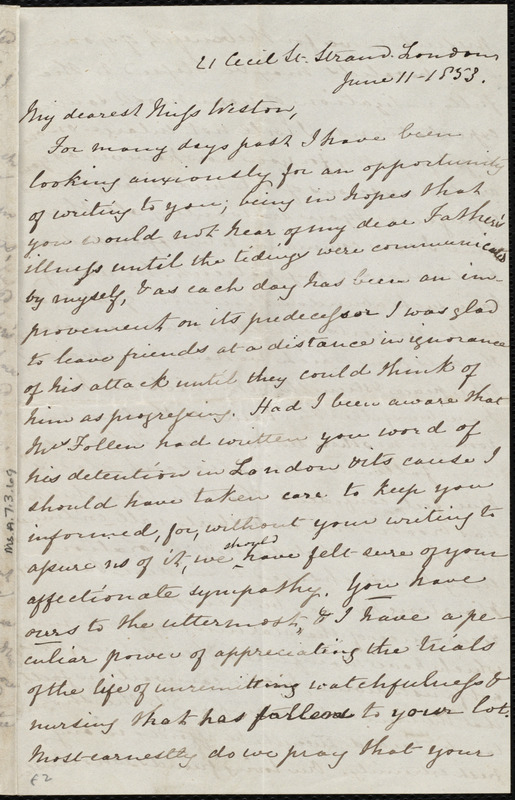 21 Cecil St. Strand. London,
June 11 - 1853.
My dearest Miss Weston,
For many days past I have been
looking anxiously for an opportunity
of writing to you; being in hopes that
you would not hear of my dear Father's
illness until the tidings were communicated
by myself, & as each day has been an im-
provement on its predecessor I was glad
to leave friends at a distance in ignorance
of his attack until they could think of
him as progressing. Had I been aware that
Mrs Follen had written you word of
his detention in London & its cause I
should have taken care to keep you
informed, for, without your writing to
assure us of it, we should have felt sure of your
affectionate sympathy. You have
ours to the uttermost, & I have a pe-
culiar power of appreciating the trials
of the life of unremitting watchfulness &
nursing that has fallen to your lot.
Most earnestly do we pray that your
Ms. A. 7.3.69